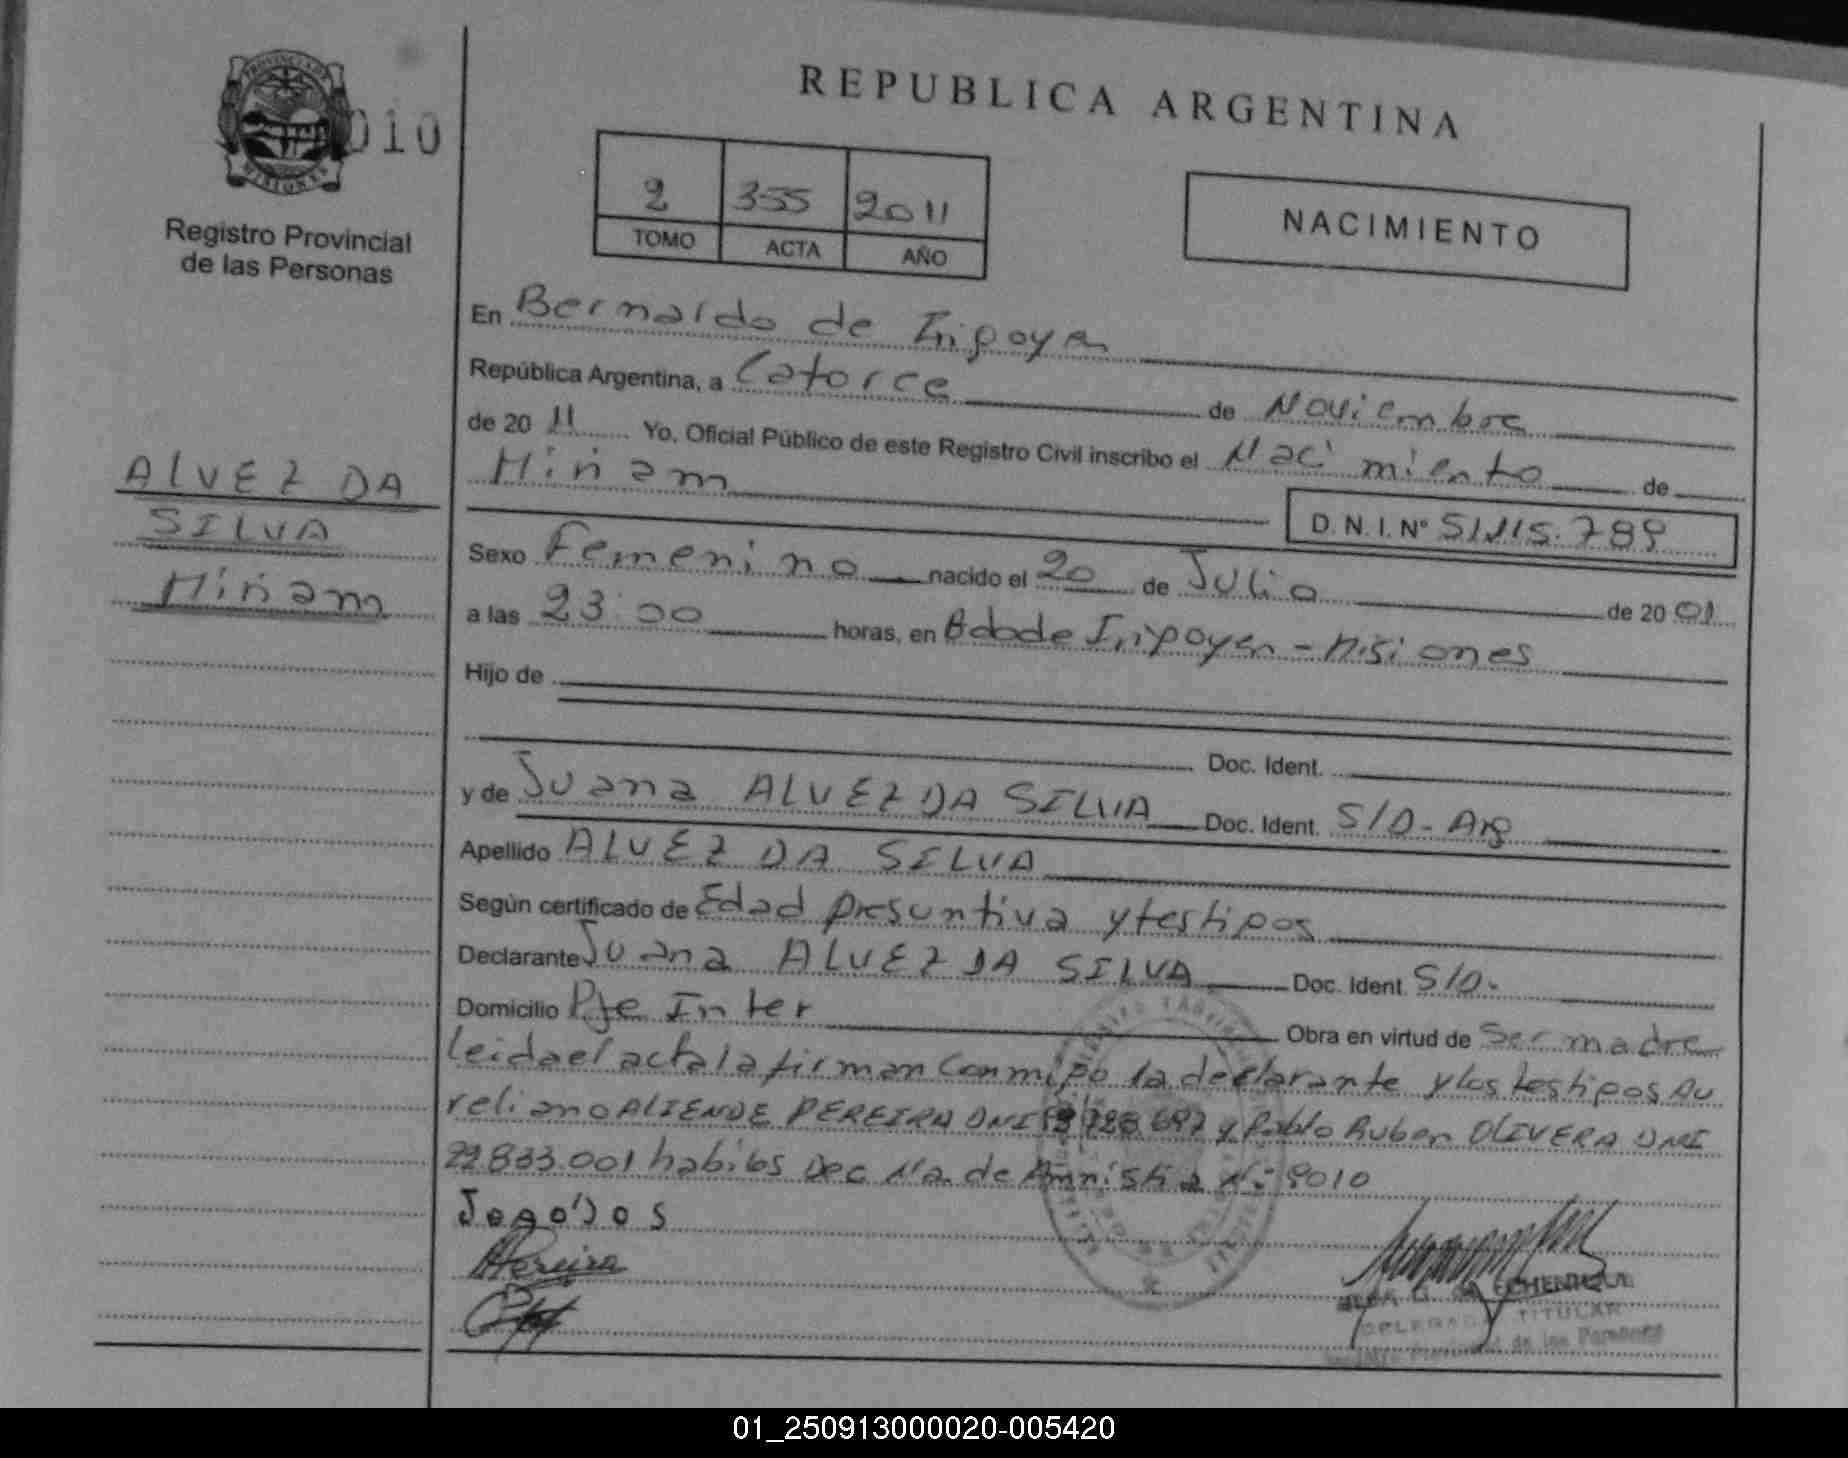 REPUBLICA ARGENTINA
PROVINCIA DE
MISIONES
010
Registro Provincial
de las Personas
2 355 2011
TOMO ACTA AÑO
NACIMIENTO
En Bernardo de Irigoyen
República Argentina, a Catorce de Noviembre
de 20 11 Yo, Oficial Público de este Registro Civil inscribo el Nacimiento de
Miriam
D.N.I. Nº 51.115.789
ALVEZ DA
SILVA
Miriam
Sexo Femenino nacido el 20 de Julio de 20 01
a las 23:00 horas, en Bdo de Irigoyen - Misiones
Hijo de
Doc. Ident.
y de Juana ALVEZ DA SILVA Doc. Ident. S/D - Arg
Apellido ALVEZ DA SILVA
Según certificado de Edad presuntiva y testigos
Declarante Juana ALVEZ DA SILVA Doc. Ident. S/D.
Domicilio Pje Inter Obra en virtud de Ser madre
leida el acta la firman conmigo la declarante y los testigos Au
reliano ALIENDE PEREIRA DNI y Pablo Ruben OLIVERA DNI
22833.001 habilos Dec Na. de Amnistia Nº 9010
Pereira
ECHENIQUE
DELEGADA TITULAR
Registro Provincial de las Personas
01_250913000020-005420